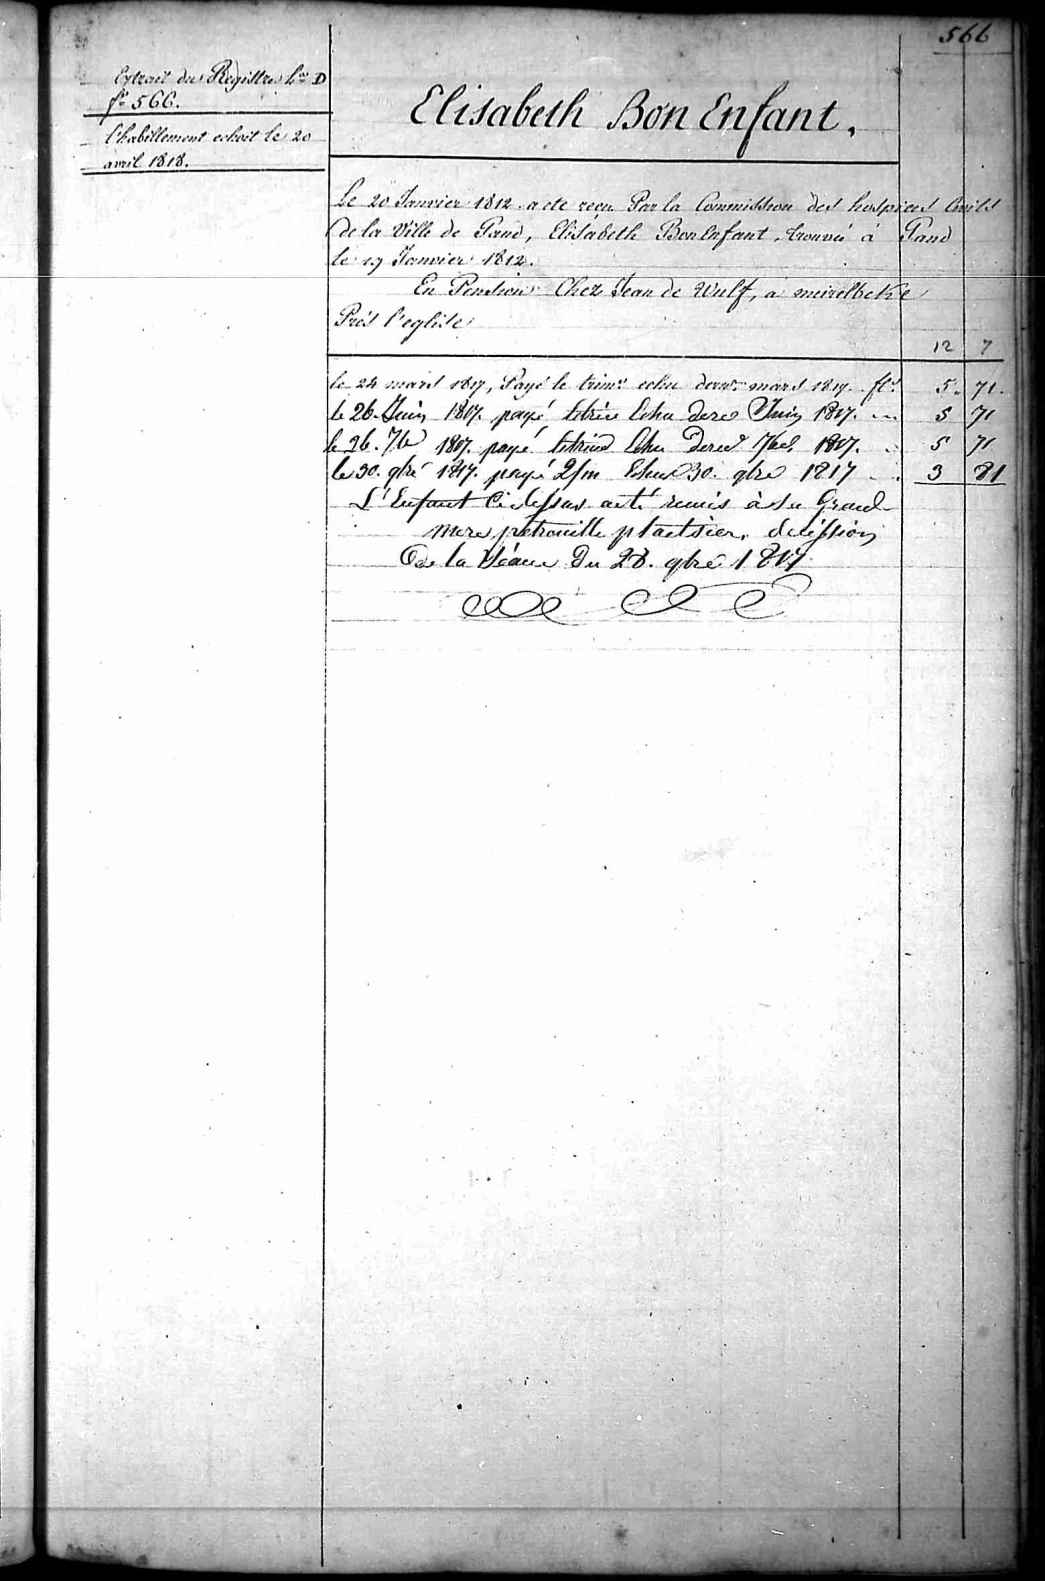 566
Extrait du Registre L.re D
f.o 566.
l'habillement echoit le 20
avril 1818.
Elisabeth Bon Enfant.
Le 20 Janvier 1812 a ete recu Par la Commission des hospices Civils
de la Ville de Gand, Elisabeth BonEnfant, trouvée à Gand
le 19 Janvier 1812.
En Pension Chez Jean de Wulf, a meirelbeke
Prés l'eglise
12 7
le 24 mars 1817, Payé le trim.e echu der.er mars 1817. fl.s 5. 71.
le 26. Juin 1817. payé letrim Echu dere Juin 1817. 5 71
le 26. 7b 1817. payé letrim Echu Dere 7bre 1817. 5 71
le 30. 9bre 1817. payé 2/m Echus 30. 9bre 1817 3 81
L'Enfant Ci dessus a eté remis à sa Grand
mere petronille plaetsier, decission
De la Séance Du 28. 9bre 1817